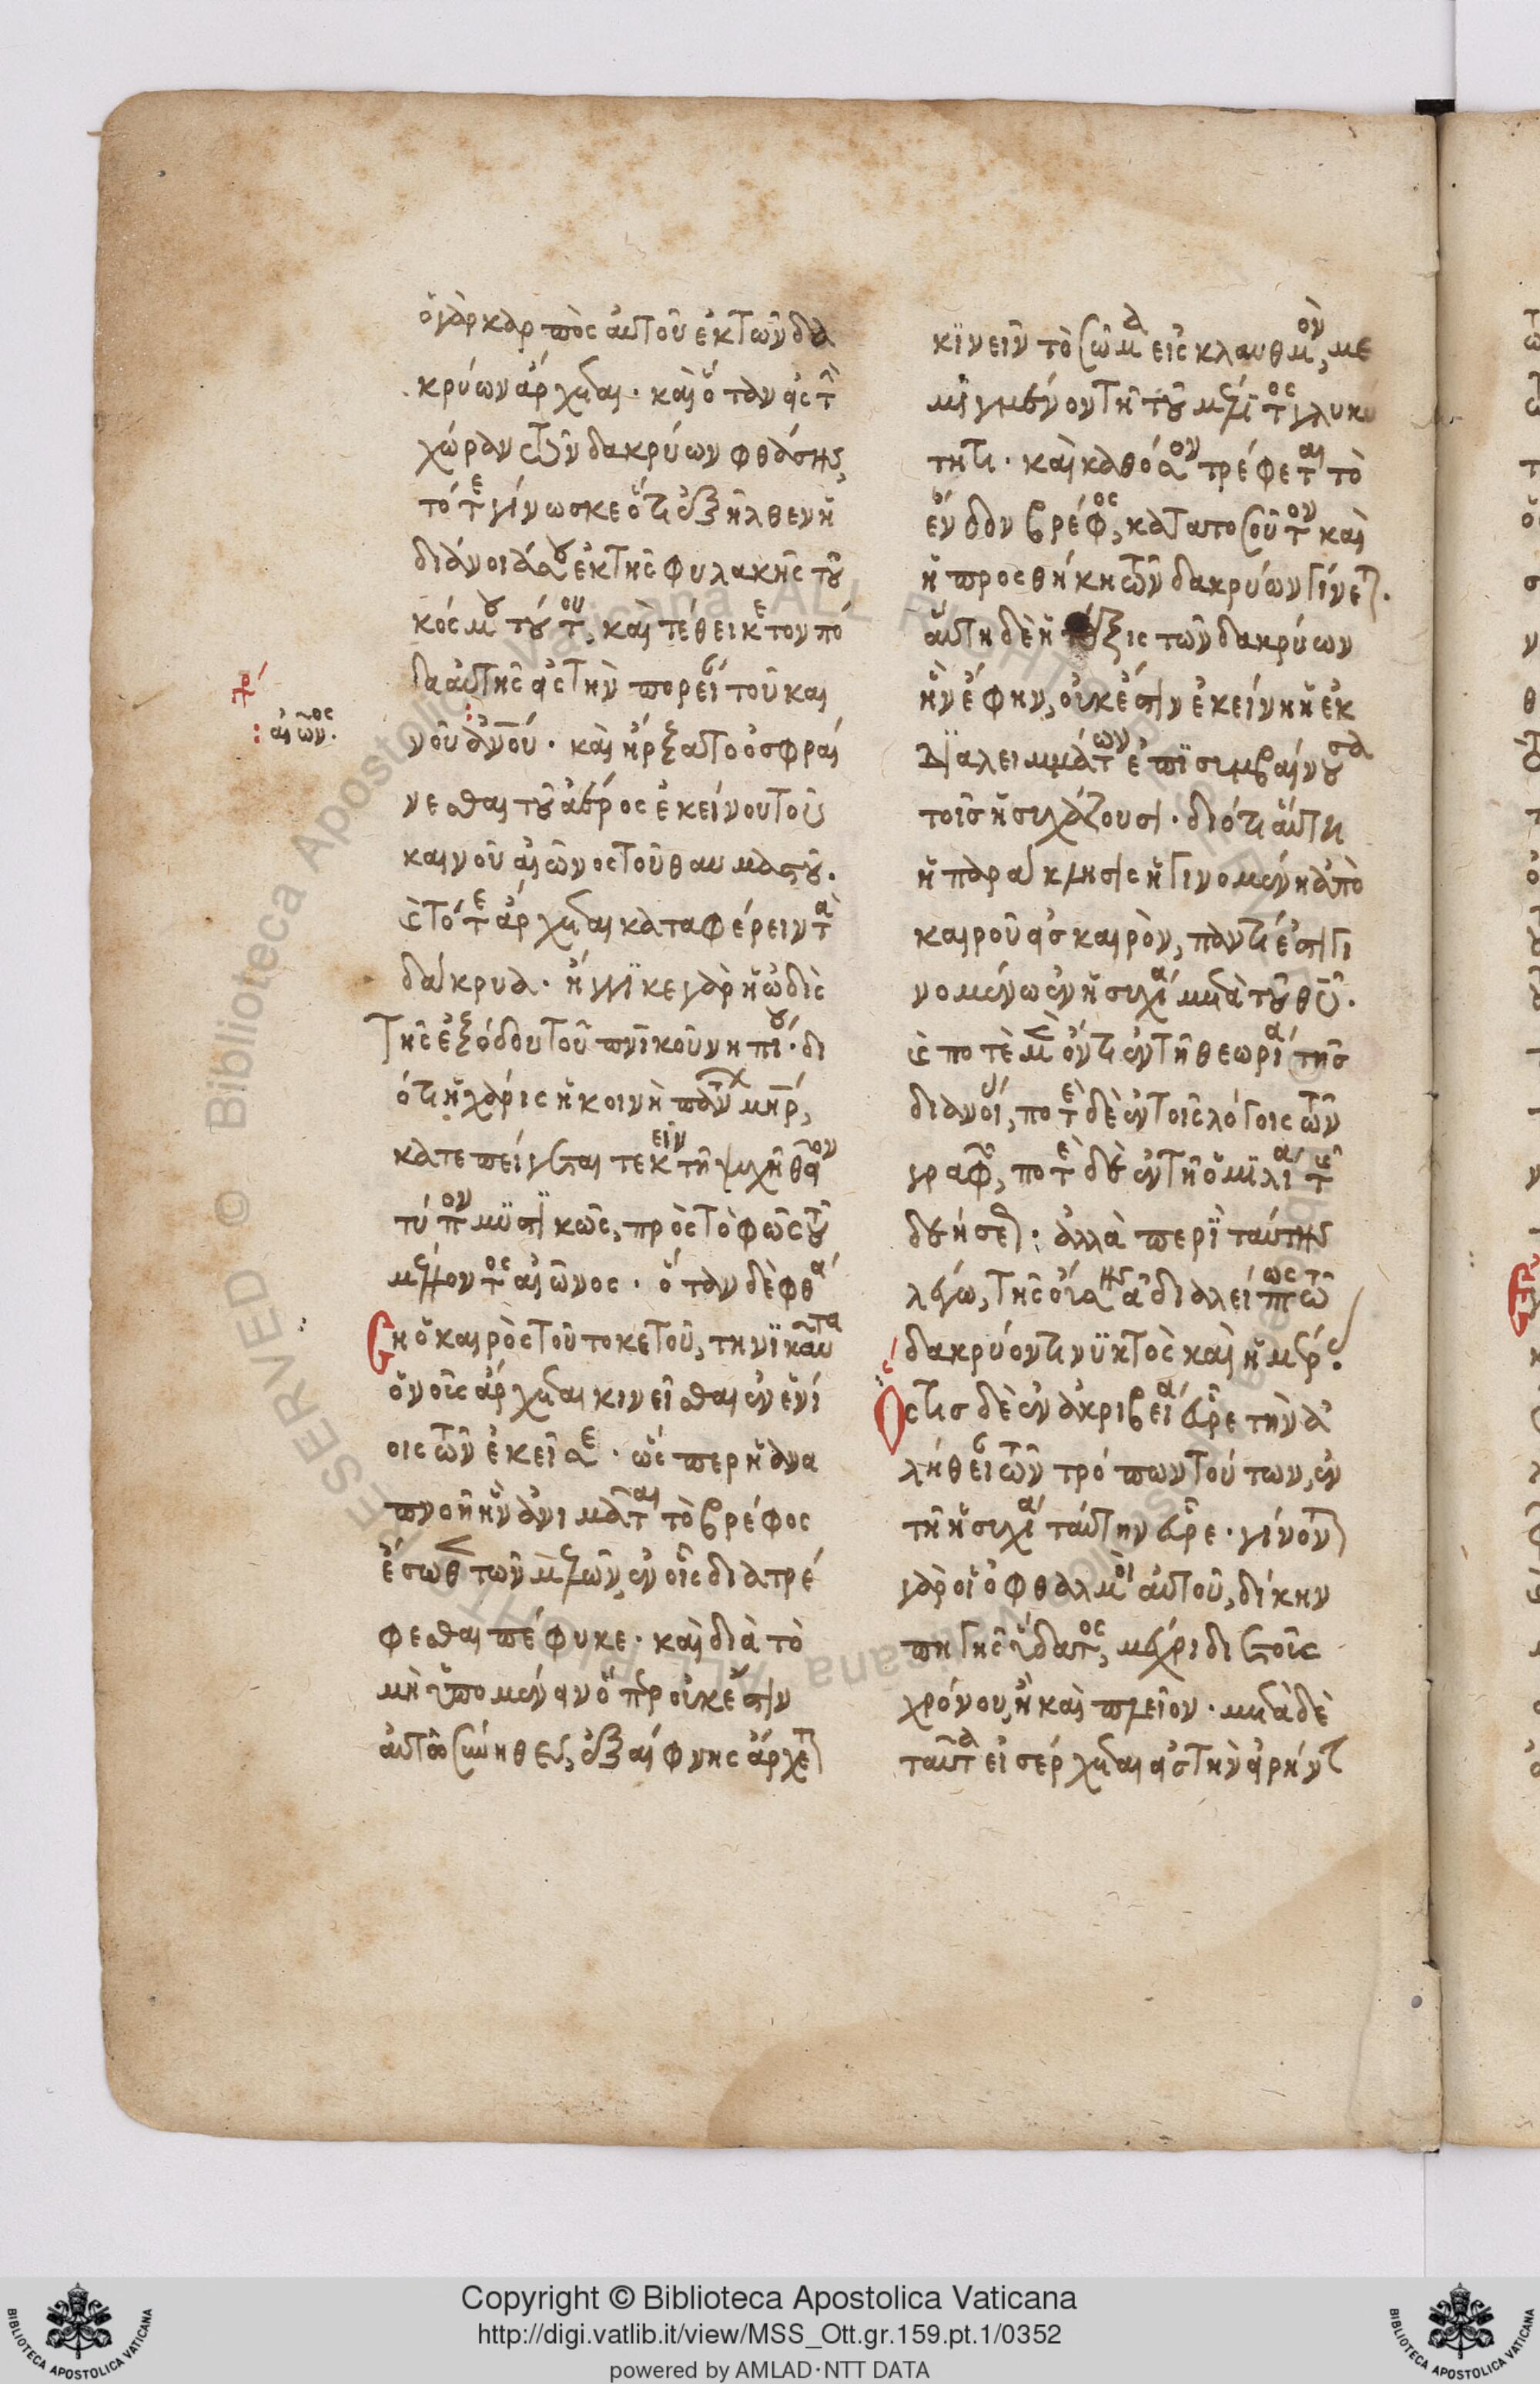 ὁ γὰρ καρπὸς αὐτοῦ ἐκ τῶν δα
κρύων ἄρχεται· καὶ ὅταν εἰς τὴν
χώραν τῶν δακρύων φθάσης,
τότε γίνωσκε ὅτι ἐξῆλθεν ἡ
διάνοιά σου ἐκ τῆς φυλακῆς τοῦ
κόσμου τούτου, καὶ τέθεικε τον πό
δα αὐτῆς εἰς τὴν πορείαν τοῦ και
νοῦ ἀν̅ου̅· καὶ ἤρξατο ὀσφραί
νεσθαι τοῦ ἀέρος ἐκείνου τοῦ
καινοῦ αἰῶνος τοῦ θαυμαστοῦ·
αἰῶνος·
καὶ τότε ἄρχεται καταφέρειν τὰ
δάκρυα· ἤγγικε γὰρ ἡ ὠδὶς
τῆς ἐξόδου τοῦ πνικοῦ νηπίου· δι
ότι ἡ χάρις ἡ κοινὴ πάντων μη̅ρ̅,
κατεπείγεται τεκεῖν τῆ ψυχῆ θεῖον
τύπον μυστικῶς, πρὸς τὸ φῶς τοῦ
μέλλοντος αἰῶνος· ὅταν δὲ φθά
ση ὁ καιρὸς τοῦ τοκετοῦ, τηνικαῦτα
ὁ νοῦς ἄρχεται κινεῖσθαι ἐν ἐνί
οις τῶν ἐκεῖσε· ὥσπερ ἡ ἀνα
πνοὴ ἣν ἀνιμᾶται τὸ βρέφος
ἔσωθεν τῶν μελῶν, ἐν οἷς διατρέ
φεσθαι πέφυκε· καὶ διὰ τὸ
μὴ ὑπομένειν ὅπερ οὐκ ἔστιν
αὐτῶ σύνηθες, ἐξαίφνης ἄρχεται
κινεῖν τὸ σῶμα εἰς κλαυθμὸν, με
μιγμένον τῆ τοῦ μέλιτος γλυκύ
τητι· καὶ καθόσον τρέφεται τὸ
ἔνδον βρέφος, κατὰ τοσοῦτον καὶ
ἡ προσθήκη τῶν δακρύων γίνεται·
αὕτη δὲ ἡ τάξις τῶν δακρύων
ἣν ἔφην, οὐκ ἔστιν ἐκείνη ἡ ἐκ
διαλειμμάτων ἐπισυμβαίνουσα
τοῖς ἡσυχάζουσι· διότι αὕτη
ἡ παράκλησις ἡ γινομένη ἀπὸ
καιροῦ εἰς καιρὸν, παντί ἐστι γι
νομένω ἐν ἡσυχία μετὰ τοῦ θ̅υ̅·
καὶ ποτὲ μὲν ὄντι ἐν τῆ θεωρία τῆς
διανοίας, ποτὲ δὲ ἐν τοῖς λόγοις τῶν
γραφῶν, ποτὲ δὲ ἐν τῆ ὁμιλία τῆς
δεήσεως· ἀλλὰ περὶ ταύτης
λέγω, τῆς οὔσης ἀδιαλείπτως τῶ
δακρύοντι νυκτὸς καὶ ἡμέρας·
Ὅστις δὲ ἐν ἀκριβεία εὗρε τὴν ἀ
λήθειαν τῶν τρόπων τούτων, ἐν
τῆ ἡσυχία ταύτην εὗρε· γίνονται
γὰρ οἱ ὀφθαλμοὶ αὐτοῦ, δίκην
πηγῆς ὕδατος, μέχρι διετοῦς
χρόνου, ἢ καὶ πλεῖον· μετὰ δὲ
ταῦτα εἰσέρχεται εἰς τὴν εἰρήνην
Copyright © Biblioteca Apostolica Vaticana
http://digi.vatlib.it/view/MSS_Ott.gr.159.pt.1/0352
powered by AMLAD·NTT DATA